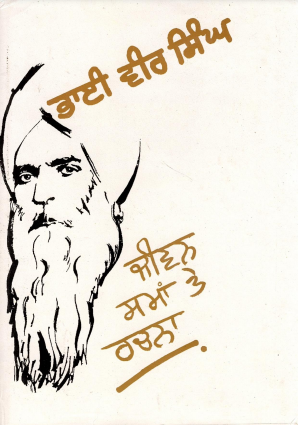 ਭਾਈ ਵੀਰ ਸਿੰਘ
ਜੀਵਨ
ਸਮਾਂ ਤੇ
ਰਚਨਾ